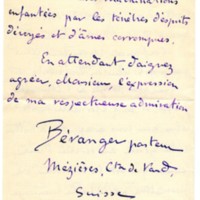 enfantées par les ténèbres d'esprits
dévoyés et d'âmes corrompues.
En attendant, daignez
agréer, Monsieur, l'expression
de ma respectueuse admiration
Béranger pasteur
Mézières, Cton de Vaud,
Suisse